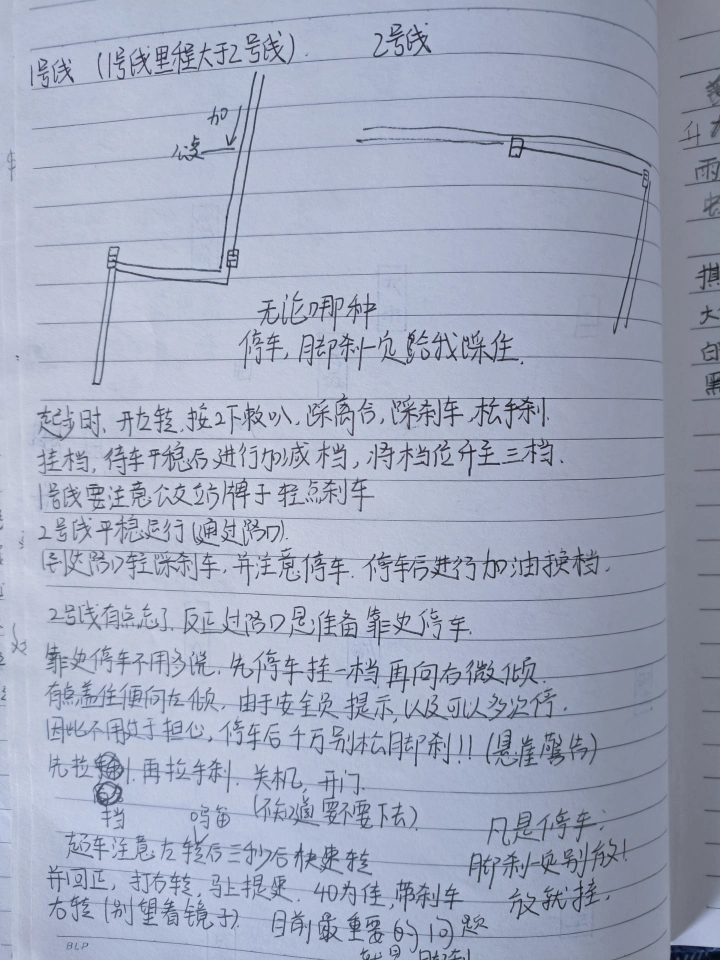 1号线 (1号线里程大于2号线). 2号线
40
公交
无论哪种
停车,脚刹一定给我踩住.
起步时,开左转,按2下喇叭,踩离合,踩刹车,松手刹.
挂档,待车平稳后进行加减档,将档位升至三档.
1号线要注意公交站牌子轻点刹车
2号线平稳运行(通过路口).
1到达路口轻踩刹车,并注意停车.停车后进行加油换档.
2号线有点忘了.反正过路口是准备靠边停车.
靠边停车不用多说,先停车挂一档再向右微倾.
有点盖住便向左倾,由于安全员提示,以及可以多次停.
因此不用过于担心,停车后千万别松脚刹!!(悬崖警告)
先拉 再拉手刹.关机,开门.
档 鸣笛 (不知道要不要下去).
凡是停车:
起车注意左转后三秒后快速转
脚刹一定别放!
并回正,打右转,马上提速.40为佳,带刹车
放就挂.
右转(别望看镜子). 目前最重要的问题
就是脚刹
升
雨
大
白
黑
BLP